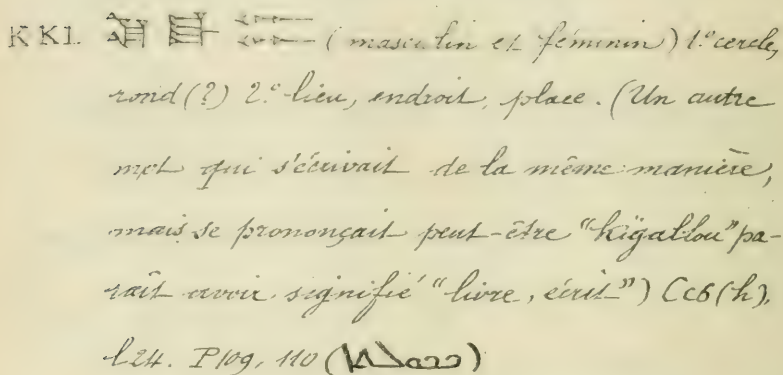 KKL (masculin et féminin) 1.º cercle,
rond (?) 2.º lieu, endroit, place. (Un autre
mot qui s'écrivait de la même manière,
mais se prononçait peut-être "kigallou" pa-
raît avoir signifié "livre, écrit") Cc6 (h).
l24. P109, 110 ()